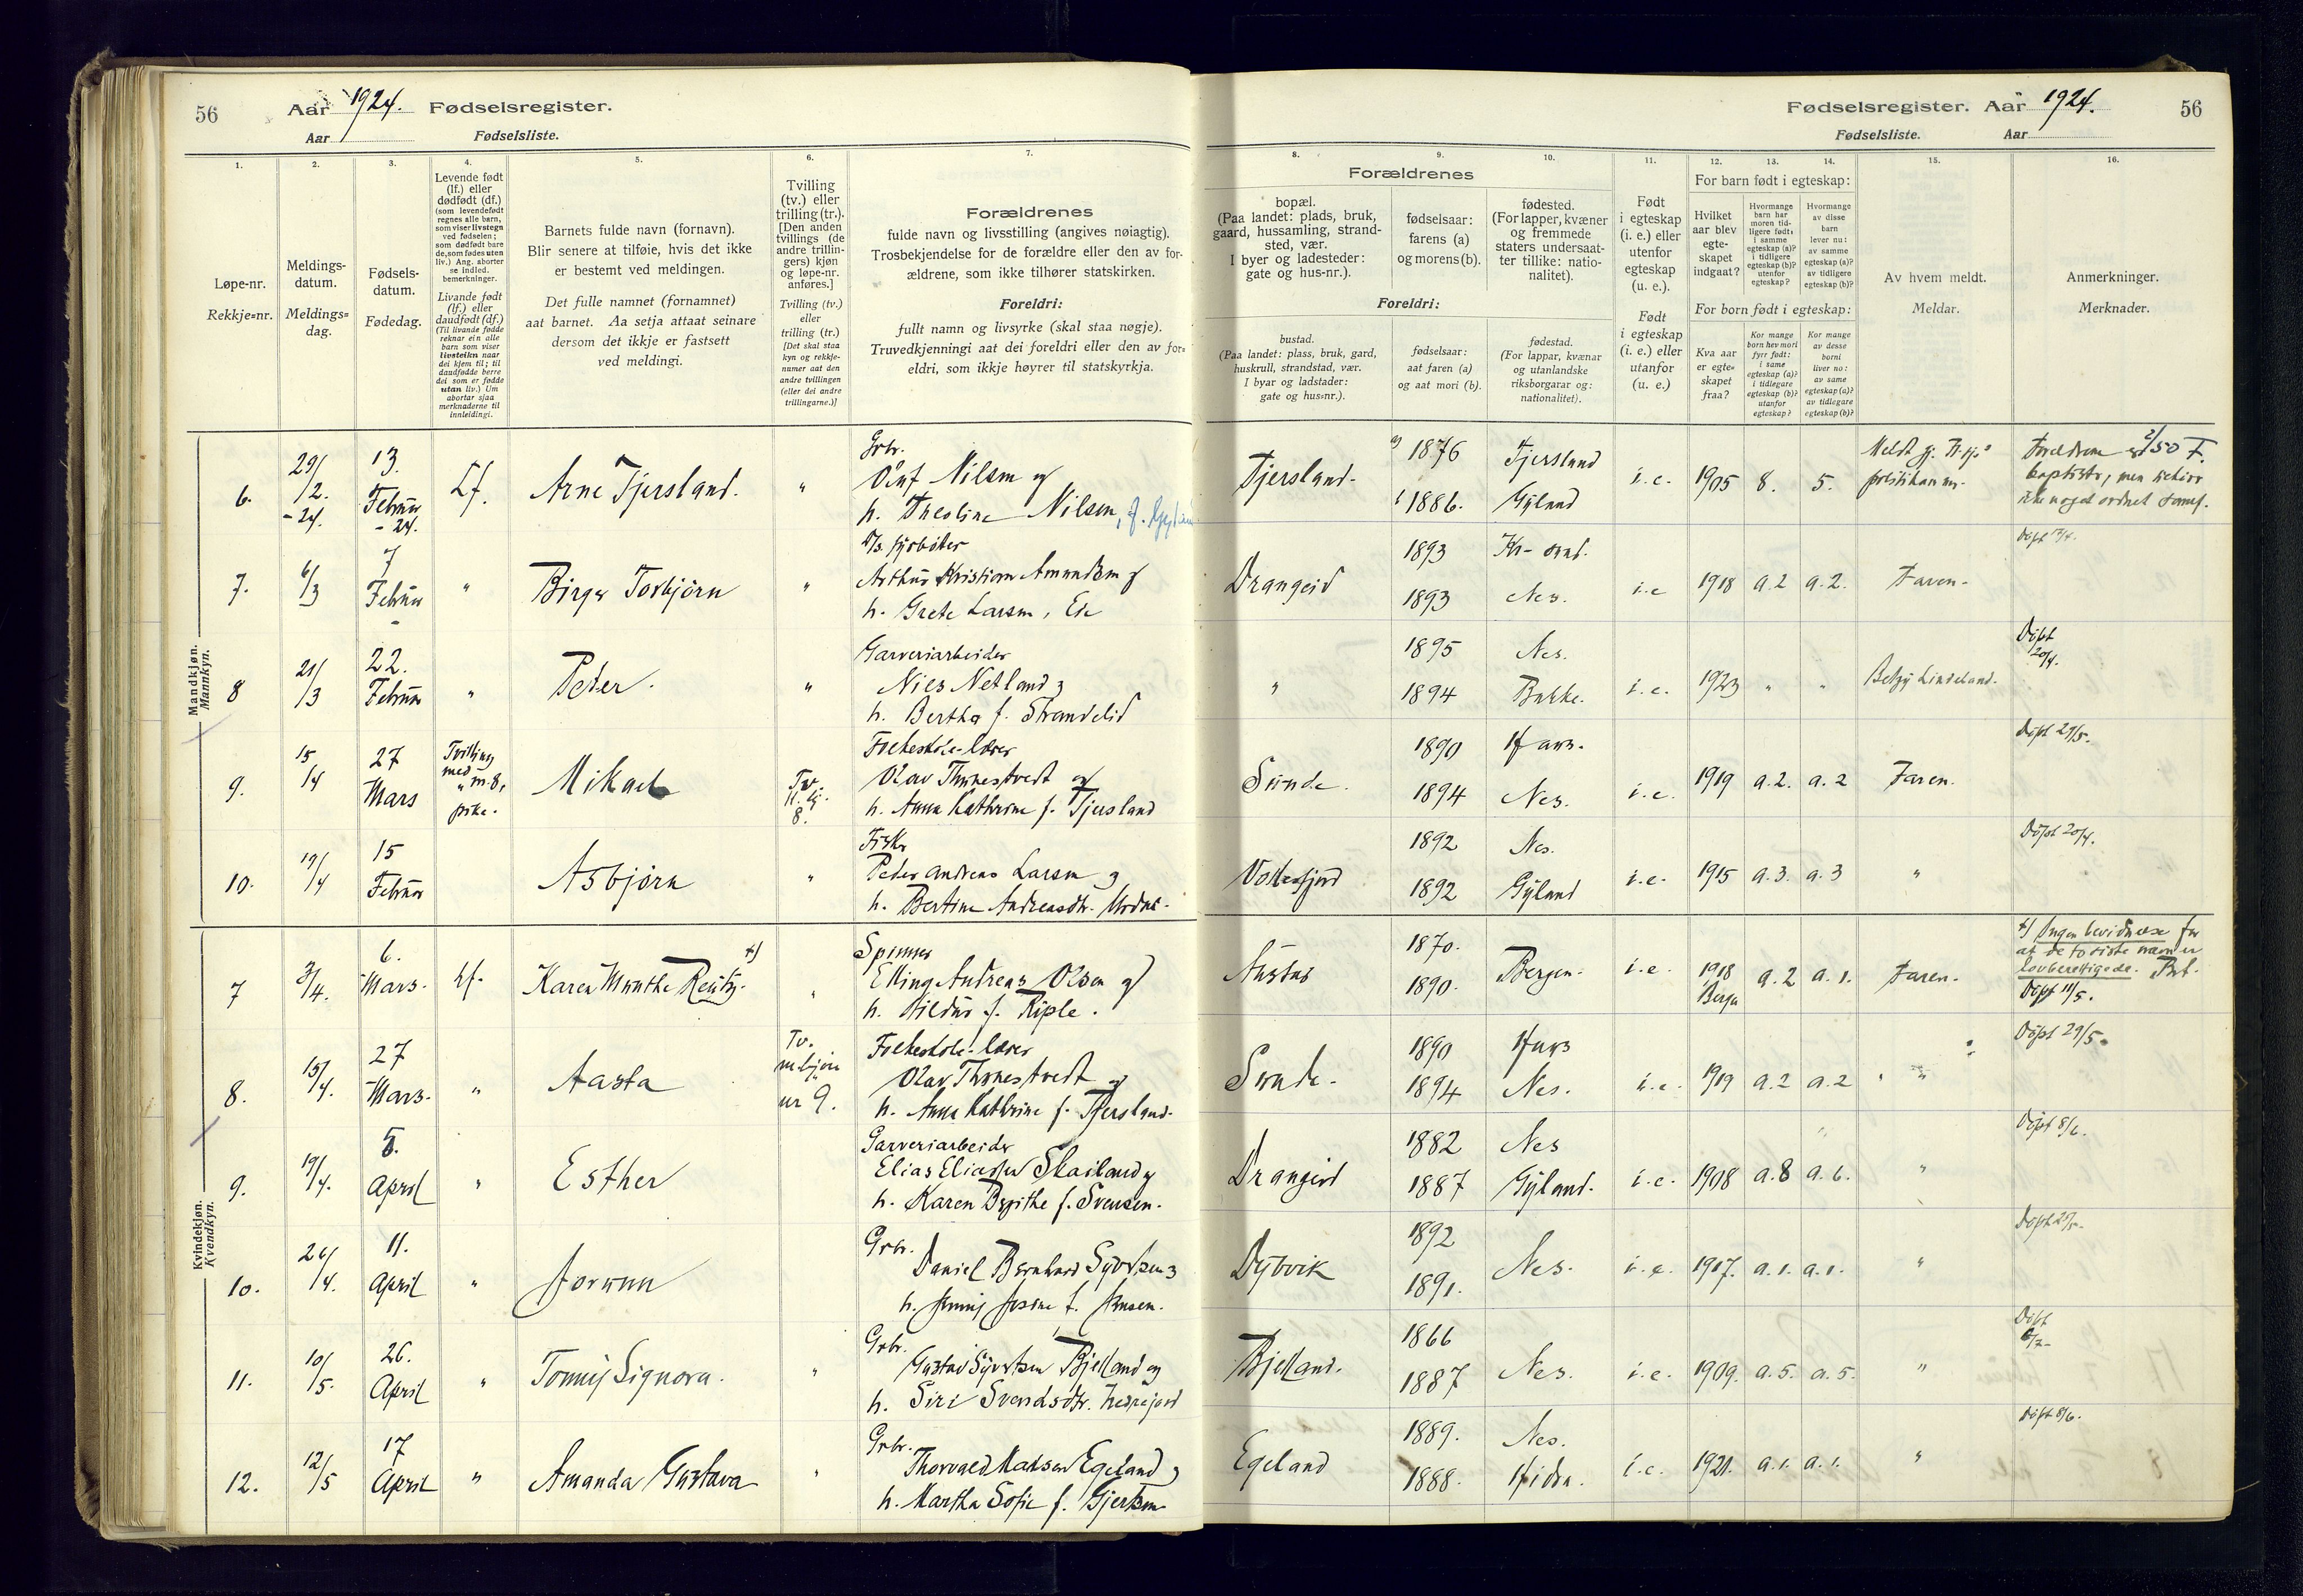 56 Aar 1924. Fødselsregister.
Aar Fødselsliste.
Fødselsregister. Aar 1924. 56
Fødselsliste. Aar
1.
Løpe-nr.
Rekkje=nr.
2.
Meldings-
datum.
Meldings=
dag.
3.
Fødsels-
datum.
Fødedag.
4.
Levende født
(lf.) eller
dødfødt (df.)
(som levendefødt
regnes alle barn,
som viser livstegn
ved fødselen;
som dødfødt bare
de, som fødes uten
liv.) Ang. aborter
se indled.
bemerkninger.
Livande født
(lf.) eller
daudfødt (df.)
(Til livande fødde
reknar ein alle
barn som viser
livsteikn naar
dei kjem til; til
daudfødde berre
dei som er fødde
utan liv.) Um
abortar sjaa
merknaderne til
innleidingi.
5.
Barnets fulde navn (fornavn).
Blir senere at tilføie, hvis det ikke
er bestemt ved meldingen.
Det fulle namnet (fornamnet)
aat barnet. Aa setja attaat seinare
dersom det ikkje er fastsett
ved meldingi.
6.
Tvilling
(tv.) eller
trilling (tr.).
[Den anden
tvillings (de
andre trillin-
gers) kjøn
og løpe-nr.
anføres.]
Tvilling (tv.)
eller
trilling (tr.)
[Det skal staa
kyn og rekkje-
numer aat den
andre tvillingen
(eller dei andre
trillingarne.)]
7.
Forældrenes
fulde navn og livsstilling (angives nøiagtig).
Trosbekjendelse for de forældre eller den av for-
ældrene, som ikke tilhører statskirken.
Foreldri:
fullt namn og livsyrke (skal staa nøgje).
Truvedkjenningi aat dei foreldri eller den av for=
eldri, som ikkje høyrer til statskyrkja.
Forældrenes
8.
bopæl.
(Paa landet: plads, bruk,
gaard, hussamling, strand-
sted, vær.
I byer og ladesteder:
gate og hus-nr.).
9.
fødselsaar:
farens (a)
og morens (b).
10.
fødested.
(For lapper, kvæner
og fremmede
staters undersaat-
ter tillike: natio-
nalitet).
Foreldri:
bustad.
(Paa landet: plass, bruk, gard,
huskrull, strandstad, vær.
I byar og ladstader:
gate og hus=nr.).
fødselsaar:
aat faren (a)
og aat mori (b).
fødestad.
(For lappar, kvænar
og utanlandske
riksborgarar og:
nationalitet).
11.
Født
i egteskap
(i. e.) eller
utenfor
egteskap
(u. e.).
Født
i egteskap
(i. e.) eller
utanfor
(u. e.)
12. 13. 14.
For barn født i egteskap:
Hvilket
aar blev
egte-
skapet
indgaat?
Hvormange
barn har
moren tid-
ligere født:
i samme
egteskap (a)?
i tidligere
egteskap (b)?
utenfor
egteskap?
Hvormange
av disse
barn
lever nu:
av samme
egteskap (a)?
av tidligere
egteskap (b)?
For born født i egteskap:
Kva aar
er egte=
skapet
fraa?
Kor mange
born hev mori
fyrr født:
i same
egteskap (a)?
i tidlegare
egteskap (b)?
utanfor
egteskap?
Kor mange
av desse
borni
liver no:
av same
egteskap (a)?
av tidlegare
egteskap (b)?
15.
Av hvem meldt.
Meldar.
16.
Anmerkninger.
Merknader.
Mandkjøn.
Mannkyn.
6. 29/2. -24. 13. Februar -24. Lf. Arne Tjersland. "
Grbr.
Oluf Nilsen og
h. Theoline Nilsen,
Tjersland. a) 1876 Tjersland
1886. Gyland i.e. 1905 8. 5.
7. 6/3 7 Februar " Birger Torbjørn "
fyrbøter
Arthur Kristian Amundsen og
h. Grete Larsen, Eie
Drangeid 1893 Kr-sand.
1893 Nes. i.e 1918 a.2 a.2. Faren.
Døpt
8 21/3 22. Februar " Peder. "
Garveriarbeider
Nies Netland og
h. Bertha f. Strandelid
" 1895 Nes.
1894 Bakke. i.e. 1923 " " Betzy Lindeland.
Døpt 20/4.
9. 15/4 27 Mars Tvilling med pike. Mikael Tv. 8.
Folkeskole-lærer
Olav Thonestvedt og
h. Anna Kathrine f. Tjersland
Sunde. 1890
1894 Nes. i.e. 1919 a.2. a.2 Faren.
Døpt 29/5.
10. 19/4 15 Februar Asbjørn "
Fisker
Peder Andreas Larsen og
h. Bertine Andreasdtr.
1892 Nes.
1892 Gyland i.e. 1915 a.3. a.3 "
Døpt 20/4.
Kvindekjøn.
Kvendkyn.
7 3/4. 6. Mars. Lf. Karen Munthe x) "
Spinner
Elling Andreas Olsen og
h. Hildur f. Riple.
1870.
1890. Bergen. i.e. 1918 Bergen a.2 a.1. Faren.
x) Ingen bevidnelse for
at de to siste navn er
lovberettigede.
Døpt 11/5.
8. 15/4. 27 Mars. " Aasta Tv. nr 9.
Folkeskole-lærer
Olav Thonestvedt og
h. Anna Kathrine f. Tjersland.
Sunde. 1890
1894 Nes. i.e. 1919 a.2 a.2 "
Døpt 29/5.
9. 19/4. 5. April " Esther
Garveriarbeider
Elias Eliassen Skailand og
h. Karen Birgithe f. Svensen.
Drangeid 1882 Nes
1887 Gyland. i.e. 1908 a.8 a.6. "
Døpt 8/6.
10. 26/4. 11. April " Jorunn
Grbr.
Daniel Bernhard Syvertsen og
h. Jenny Josine f. Jensen.
Dybvik 1892
1891. Nes. i.e. 1917. a.1. a.1. "
Døpt
11. 10/5. 26. April " Tonny Signora. "
Grbr.
Gustav Syvertsen Bjelland og
h. Siri Svendsdtr.
Bjelland. 1866
1887 Nes. i.e. 1909. a.5. a.5. "
Døpt
12. 12/5 17 April " Amanda Gustava "
Grbr.
Thorvald Madsen Egeland og
h. Martha Sofie f. Gjertsen
Egeland 1889. Nes.
1888. Hidra. i.e. 1921. a.1. a.1. "
Døpt 8/6.